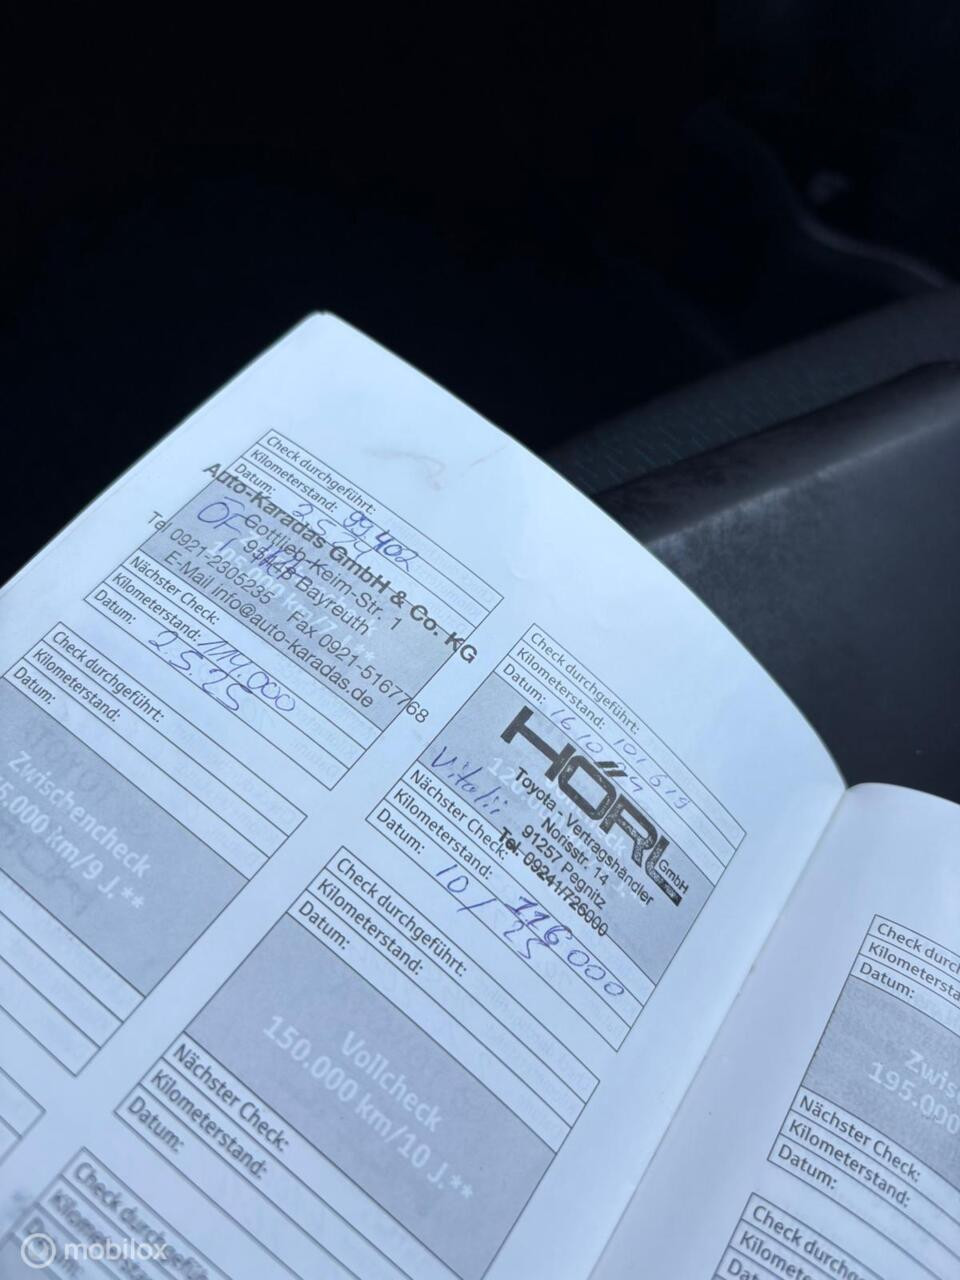 Check durchgeführt:
Kilometerstand: 99402
Datum:
Auto-Karadas GmbH & Co. KG
Gottlieb-Keim-Str. 1
95448 Bayreuth
Tel 0921-2305239 Fax 0921-5167768
E-Mail info@auto-karadas.de
Nächster Check:
Kilometerstand: 114.000
Datum: 25.25
Check durchgeführt:
Kilometerstand: 101 619
Datum: 16 10
HÖRL GmbH
Toyota - Vertragshändler
Norisstr. 14
91257 Pegnitz
Tel. 09241/726000
Vitalii
Nächster Check:
Kilometerstand: 116 000
Datum: 10 / 25
Check durchgeführt:
Kilometerstand:
Datum:
Zwischencheck
5.000 km/9 J.**
Check durchgeführt:
Kilometerstand:
Datum:
Vollcheck
150.000 km/10 J.**
Nächster Check:
Kilometerstand:
Datum:
Check durchgefüh
Kilometerstand:
Check durc
Kilometersta
Datum:
Zwis
195.000
Nächster Check:
Kilometerstand:
Datum:
Check durchge
Kilometerst
Dat
mobilox